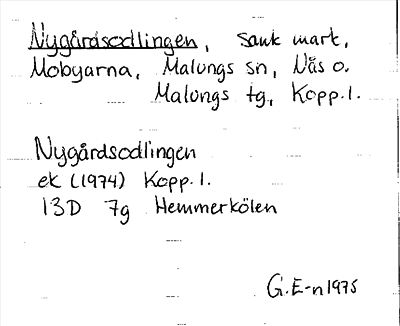 Nygårdsodlingen, sank mark,
Mobyarna, Malungs sn, Näs o.
Malungs tg, Kopp. l.
Nygårdsodlingen
ek (1974) Kopp. l.
13D 7g Hemmerkölen
G.E-n 1975